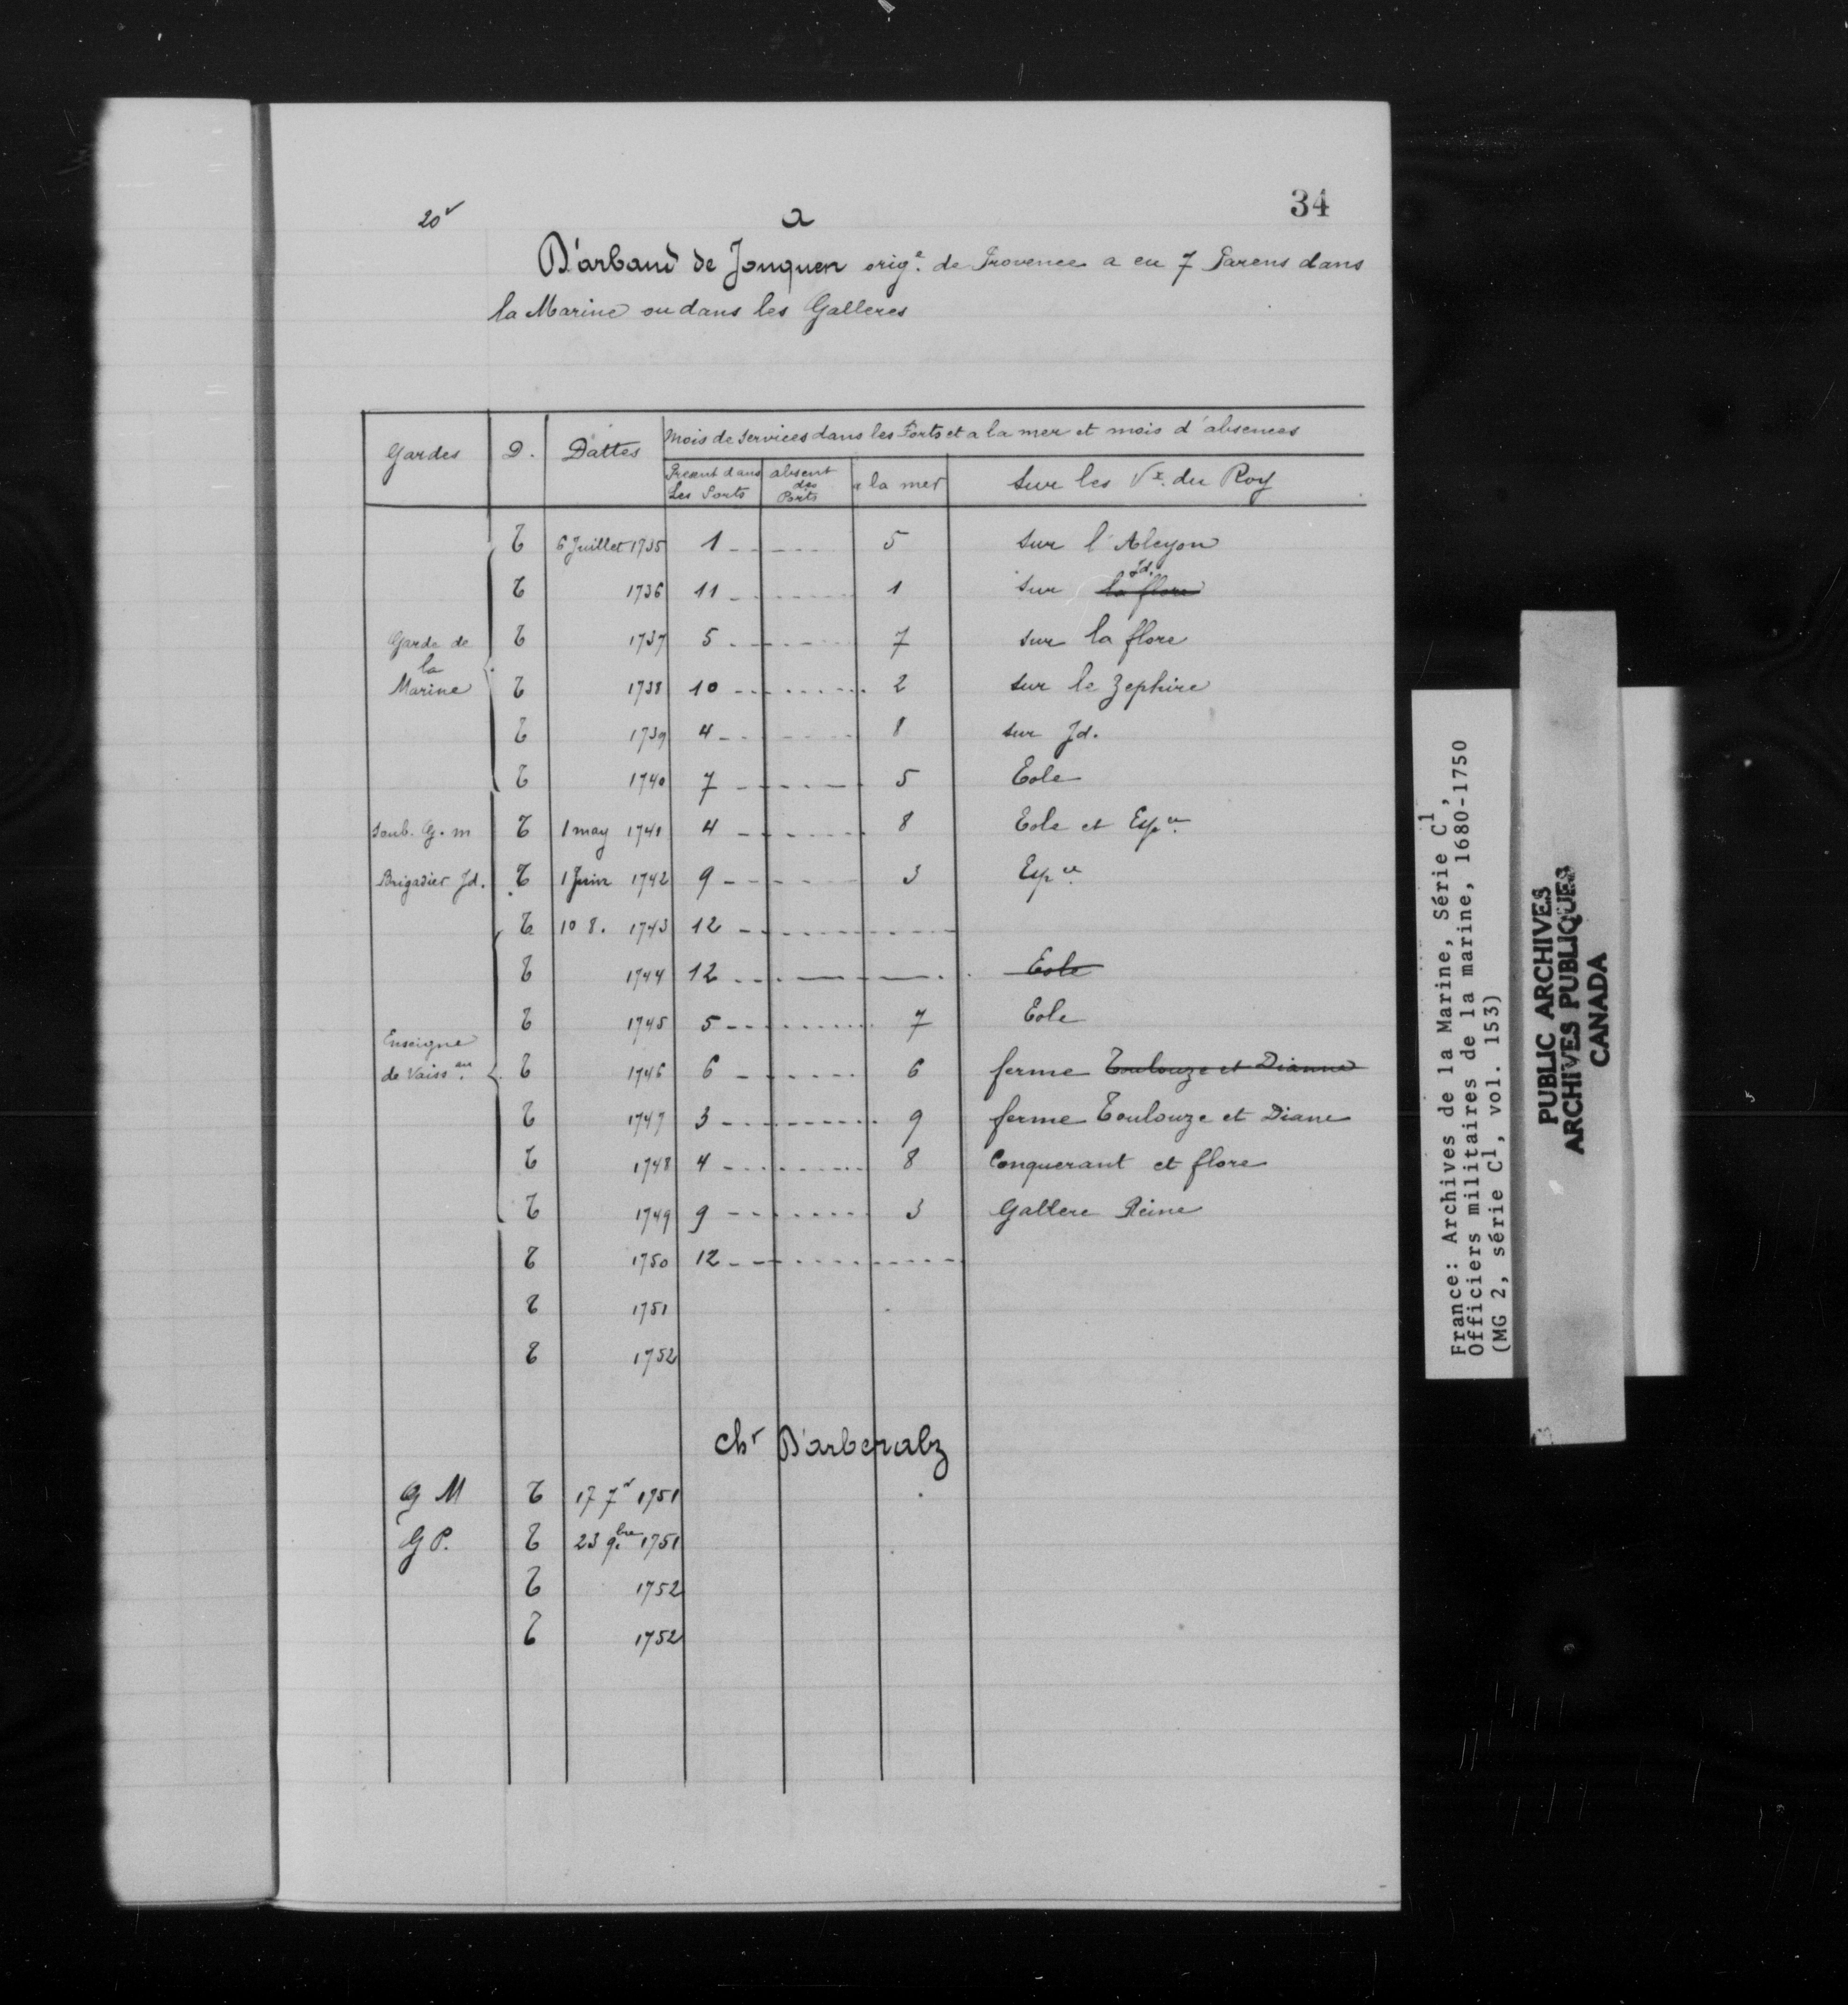 20v
a
34
D'arbaud de Jouquen orig.e de Provence a eu 7 Parens dans
la Marine ou dans les Galleres
Gardes D. Dattes Mois de Services dans les Ports et a la mer et mois d'absences
Preent dans Les Ports absent des Ports a la mer Sur les Vx. du Roy
T 6 Juillet 1735 1 5 sur l'Alcyon
T 1736 11 1 sur la flore Jd.
Garde de la Marine
T 1737 5 7 sur la flore
T 1738 10 2 sur le Zephire
T 1739 4 8 sur Jd.
T 1740 7 5 Eole
Soub. G. m T 1 may 1741 4 8 Eole et Espce
Brigadier Jd. T 1 Juin 1742 9 3 Espce
T 10 8. 1743 12
T 1744 12 Eole
T 1745 5 7 Eole
Enseigne de Vaisseau.
T 1746 6 6 ferme Toulouze et Dianne
T 1747 3 9 ferme Toulouze et Diane
T 1748 4 8 Conquerant et flore
T 1749 9 3 Gallere Reine
T 1750 12
T 1751
T 1752
chr D'arberalz
G M T 17 7r 1751
G P. T 23 9.bre 1751
T 1752
T 1752
France: Archives de la Marine, Série C1,
Officiers militaires de la marine, 1680-1750
(MG 2, série C1, vol. 153)
PUBLIC ARCHIVES
ARCHIVES PUBLIQUES
CANADA